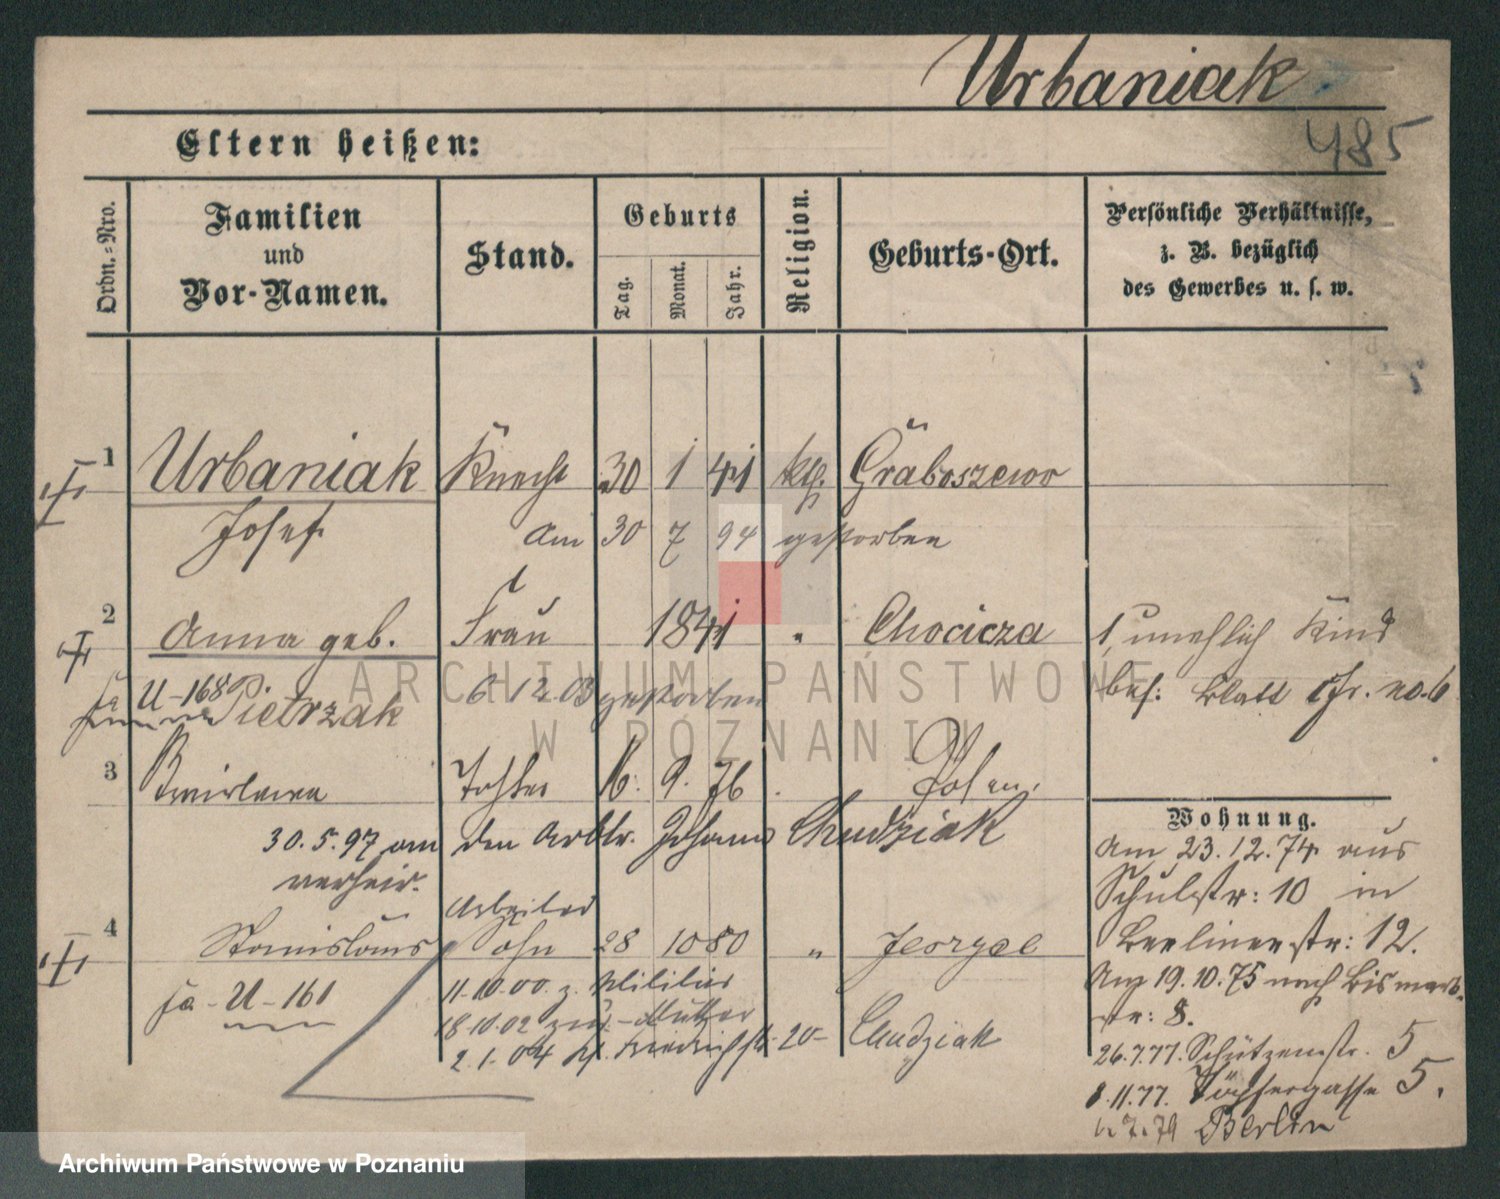 Urbaniak
485
Eltern heißen:
Ordn.=Nro.
Familien
und
Vor-Namen.
Stand.
Geburts
Tag.
Monat.
Jahr.
Religion.
Geburts-Ort.
Persönliche Verhältnisse,
z. B. bezüglich
des Gewerbes u. s. w.
1 Urbaniak Knecht 30 1 41 kth. Graboszewo
Josef am 30 7 94 gestorben
2 Anna geb. Frau 1841 " Chocicza 1 unehlich Kind
U-168 Pietrzak 6 12 03 gestorben bes: Blatt No. 6
3 Tochter 16. 9. 76 Posen.
30.5.97 an den Arbtr. Johann Chudziak
verheir.
Wohnung.
Am 23.12.74 aus
Schulstr: 10 in
Berlinerstr: 12.
Am 19.10.75 nach Bismark-
str: 8.
26.7.77. Schützenstr. 5
8.11.77. Töpfergasse 5.
Berlin
Arbeiter
4 Stanislaus Sohn 28 10 80 " Jeorgae
fa-U-161 11.10.00. z. Militär
18.10.02 zur Mutter
2.1.04 Friedrichstr. 20- Chudziak
ARCHIWUM PAŃSTWOWE
W POZNANIU
Archiwum Państwowe w Poznaniu